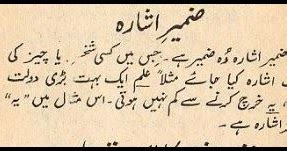 ضمیر اشارہ
ضمیر اشارہ وُہ ضمیر ہے۔ جس میں کسی شخص یا چیز کی
اشارہ کیا جائے مثلاً علم ایک بہت بڑی دولت
، یہ خرچ کرنے سے کم نہیں ہوتی۔ اس مثال میں "یہ"
اشارہ ہے۔